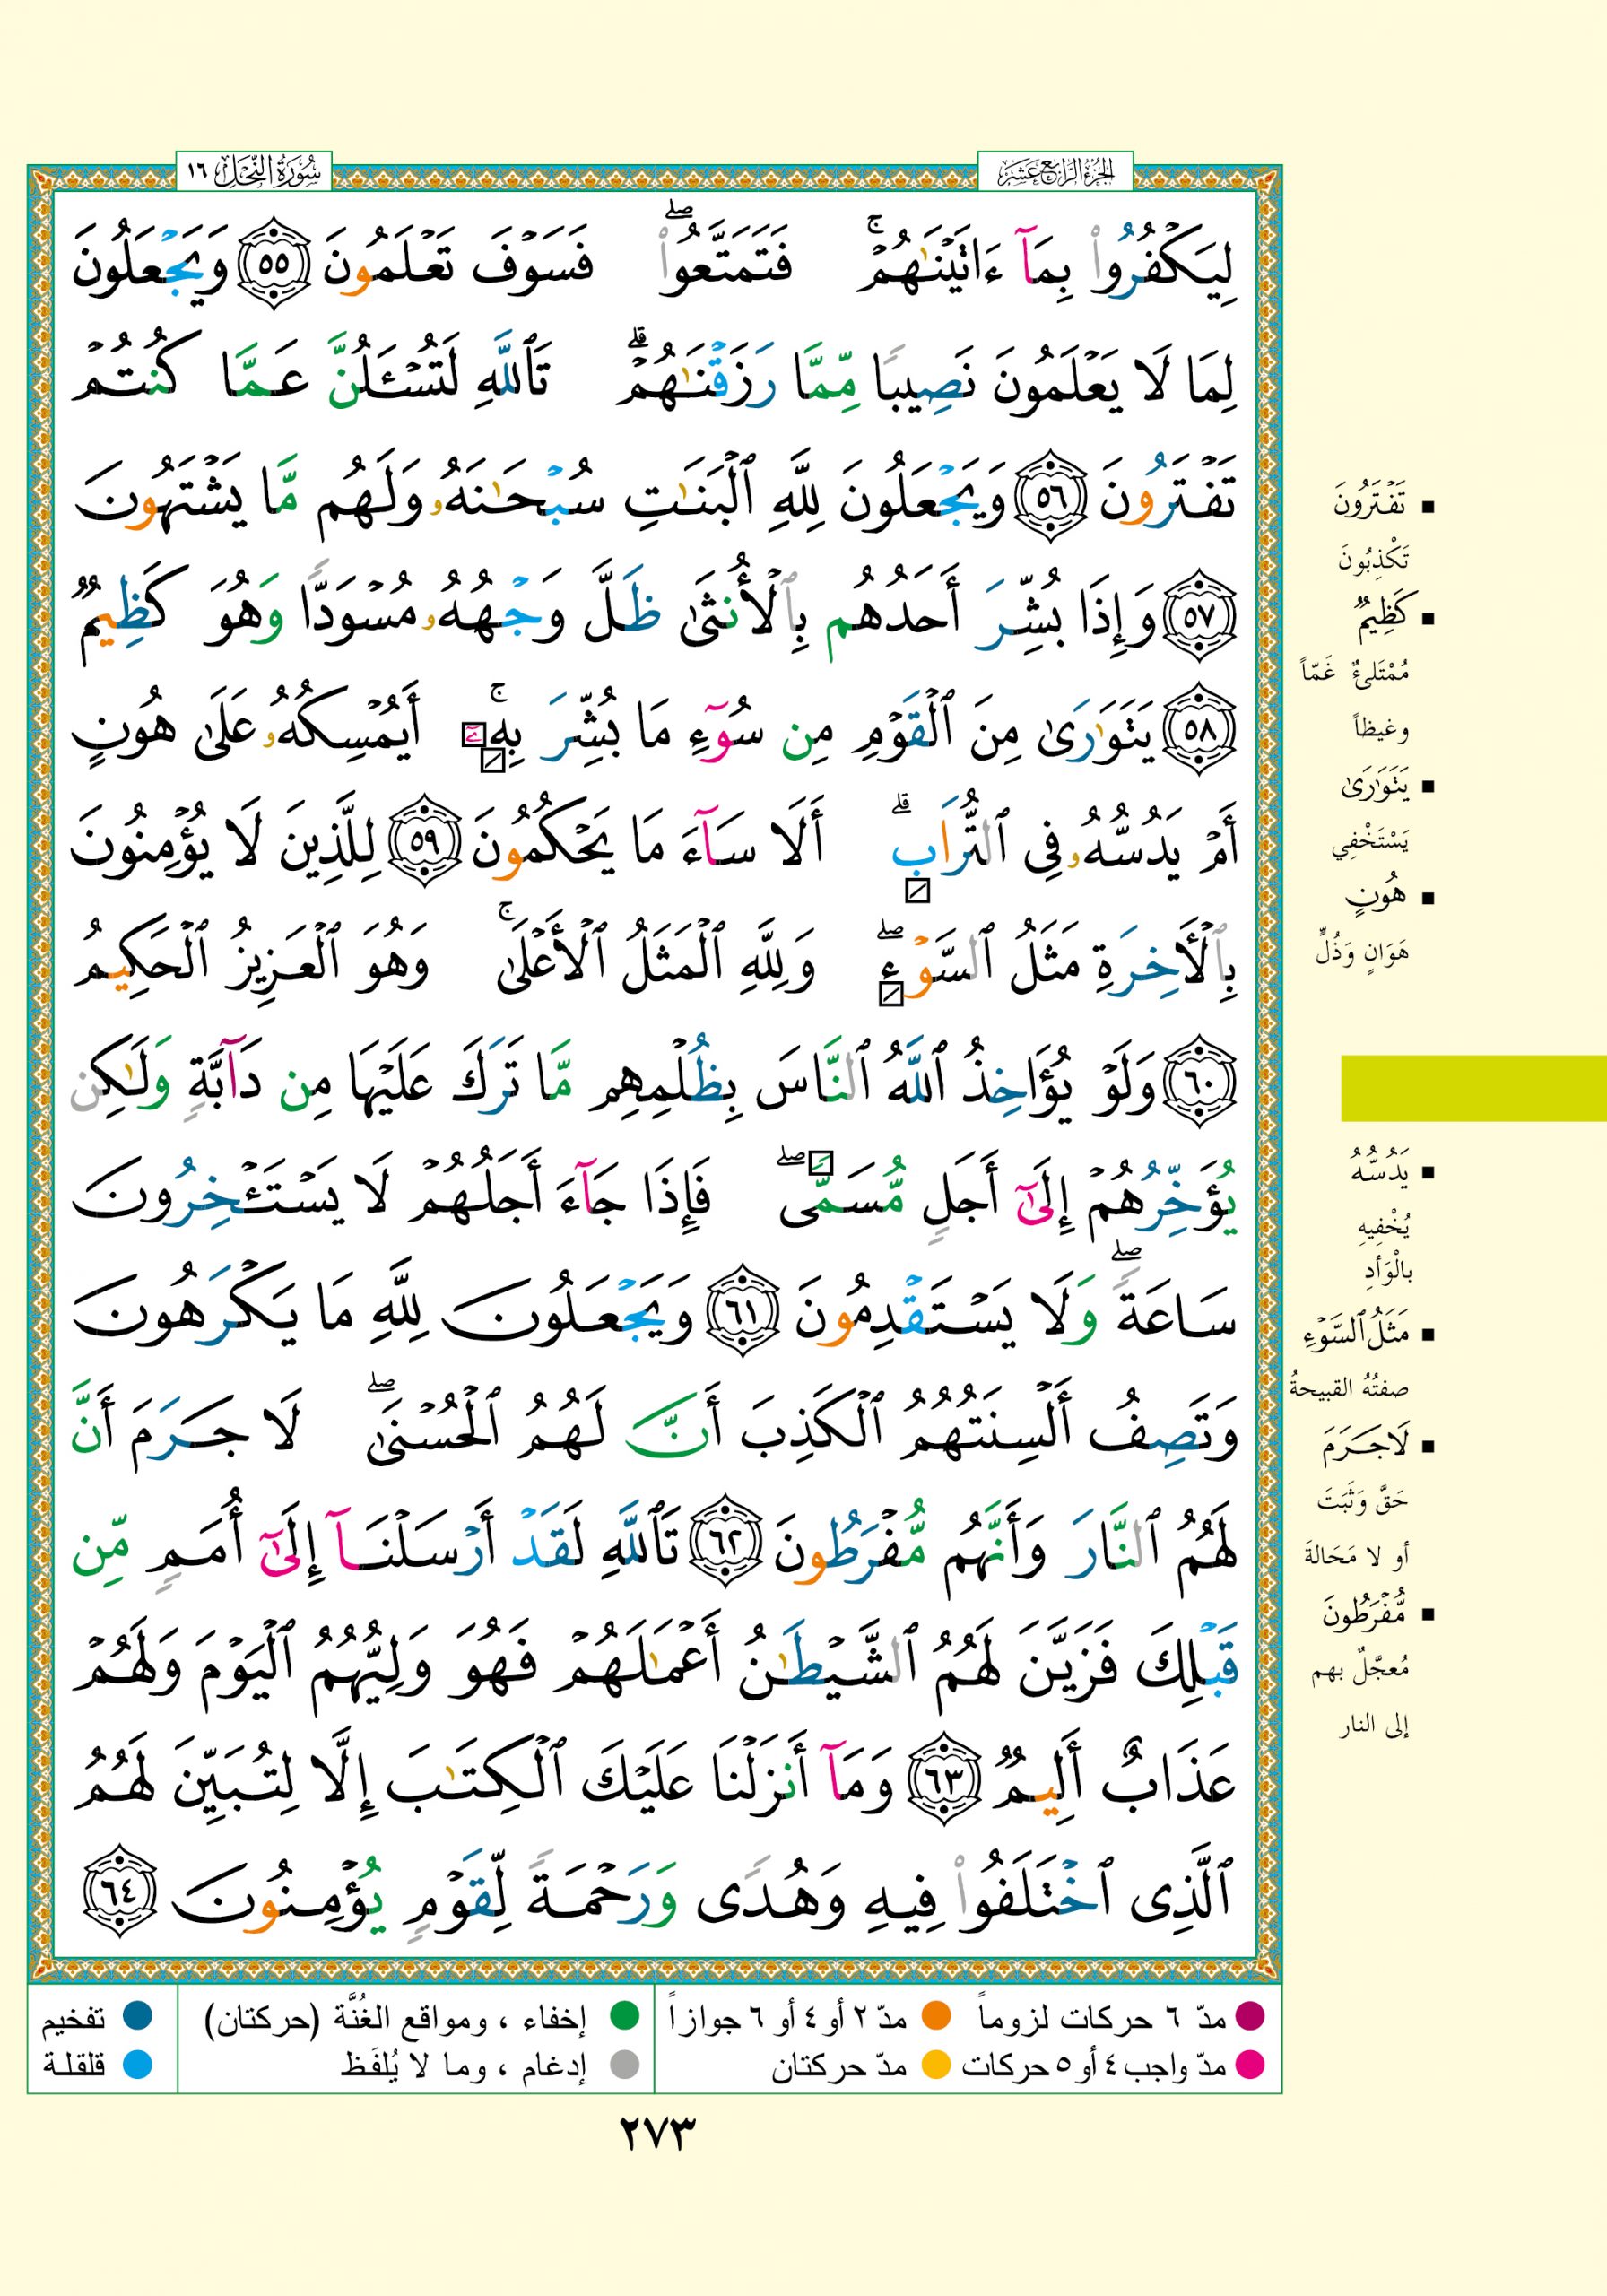 الجزء الرابع عشر
سورة النحل ١٦
لِيَكْفُرُوا۟ بِمَآ ءَاتَيْنَٰهُمْ ۚ فَتَمَتَّعُوا۟ ۖ فَسَوْفَ تَعْلَمُونَ ٥٥ وَيَجْعَلُونَ
لِمَا لَا يَعْلَمُونَ نَصِيبًا مِّمَّا رَزَقْنَٰهُمْ ۗ تَٱللَّهِ لَتُسْـَٔلُنَّ عَمَّا كُنتُمْ
تَفْتَرُونَ ٥٦ وَيَجْعَلُونَ لِلَّهِ ٱلْبَنَٰتِ سُبْحَٰنَهُۥ وَلَهُم مَّا يَشْتَهُونَ
٥٧ وَإِذَا بُشِّرَ أَحَدُهُم بِٱلْأُنثَىٰ ظَلَّ وَجْهُهُۥ مُسْوَدًّا وَهُوَ كَظِيمٌ
٥٨ يَتَوَٰرَىٰ مِنَ ٱلْقَوْمِ مِن سُوٓءِ مَا بُشِّرَ بِهِۦٓ ۚ أَيُمْسِكُهُۥ عَلَىٰ هُونٍ
أَمْ يَدُسُّهُۥ فِى ٱلتُّرَابِ ۗ أَلَا سَآءَ مَا يَحْكُمُونَ ٥٩ لِلَّذِينَ لَا يُؤْمِنُونَ
بِٱلْأَخِرَةِ مَثَلُ ٱلسَّوْءِ ۖ وَلِلَّهِ ٱلْمَثَلُ ٱلْأَعْلَىٰ ۚ وَهُوَ ٱلْعَزِيزُ ٱلْحَكِيمُ
٦٠ وَلَوْ يُؤَاخِذُ ٱللَّهُ ٱلنَّاسَ بِظُلْمِهِم مَّا تَرَكَ عَلَيْهَا مِن دَآبَّةٍ وَلَٰكِن
يُؤَخِّرُهُمْ إِلَىٰٓ أَجَلٍ مُّسَمًّى ۖ فَإِذَا جَآءَ أَجَلُهُمْ لَا يَسْتَـْٔخِرُونَ
سَاعَةً ۖ وَلَا يَسْتَقْدِمُونَ ٦١ وَيَجْعَلُونَ لِلَّهِ مَا يَكْرَهُونَ
وَتَصِفُ أَلْسِنَتُهُمُ ٱلْكَذِبَ أَنَّ لَهُمُ ٱلْحُسْنَىٰ ۖ لَا جَرَمَ أَنَّ
لَهُمُ ٱلنَّارَ وَأَنَّهُم مُّفْرَطُونَ ٦٢ تَٱللَّهِ لَقَدْ أَرْسَلْنَآ إِلَىٰٓ أُمَمٍ مِّن
قَبْلِكَ فَزَيَّنَ لَهُمُ ٱلشَّيْطَٰنُ أَعْمَٰلَهُمْ فَهُوَ وَلِيُّهُمُ ٱلْيَوْمَ وَلَهُمْ
عَذَابٌ أَلِيمٌ ٦٣ وَمَآ أَنزَلْنَا عَلَيْكَ ٱلْكِتَٰبَ إِلَّا لِتُبَيِّنَ لَهُمُ
ٱلَّذِى ٱخْتَلَفُوا۟ فِيهِ وَهُدًى وَرَحْمَةً لِّقَوْمٍ يُؤْمِنُونَ ٦٤
▪ تَفْتَرُونَ
تَكْذِبُونَ
▪ كَظِيمٌ
مُمْتَلِئٌ غَمّاً
وغيظاً
▪ يَتَوَٰرَىٰ
يَسْتَخْفِي
▪ هُونٍ
هَوَانٍ وَذُلٍّ
▪ يَدُسُّهُ
يُخْفِيهِ
بالْوَأدِ
▪ مَثَلُ ٱلسَّوْءِ
صفتُهُ القبيحةُ
▪ لَا جَرَمَ
حَقَّ وَثَبَتَ
أو لا مَحَالةَ
▪ مُّفْرَطُونَ
مُعجَّلٌ بهم
إلى النار
مدّ ٦ حركات لزوماً
مدّ ٢ أو ٤ أو ٦ جوازاً
إخفاء ، ومواقع الغُنَّة (حركتان)
تفخيم
مدّ واجب ٤ أو ٥ حركات
مدّ حركتان
إدغام ، وما لا يُلفَظ
قلقلة
٢٧٣